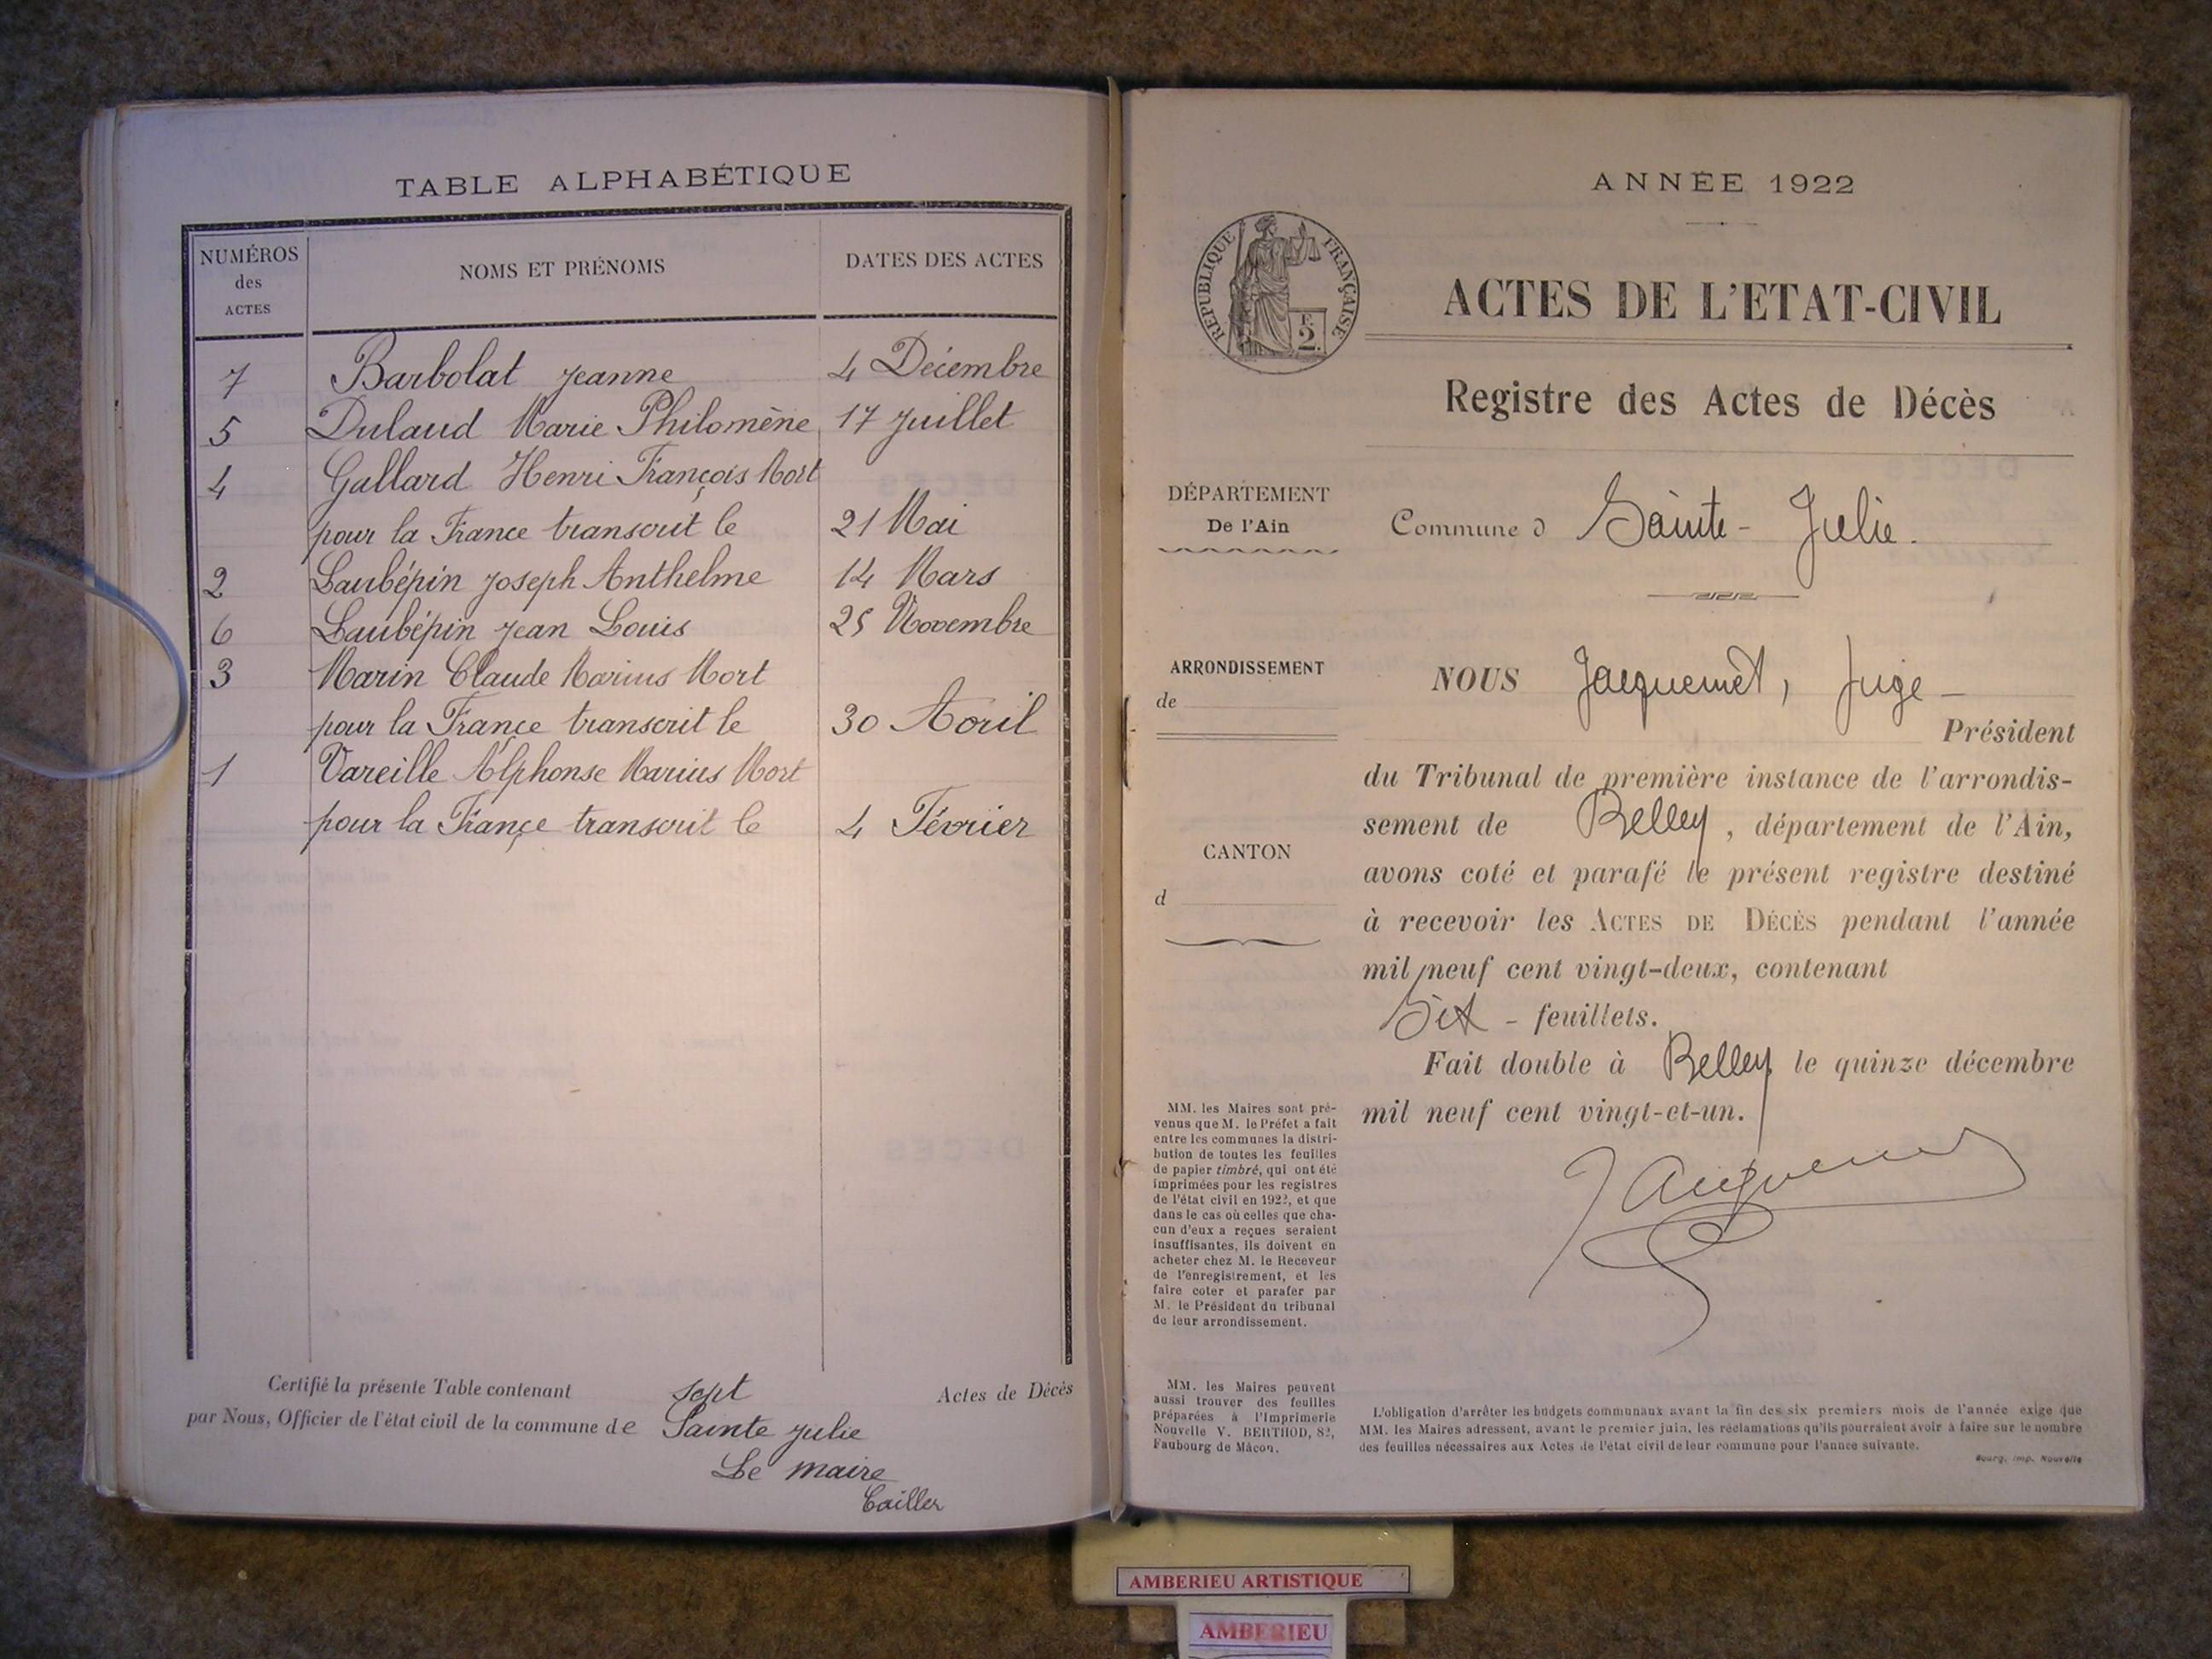 TABLE ALPHABÉTIQUE
NUMÉROS des ACTES
NOMS ET PRÉNOMS
DATES DES ACTES
7 Barbolat Jeanne 4 Décembre
5 Dulaud Marie Philomène 17 Juillet
4 Gallard Henri François Mort
pour la France transcrit le 21 Mai
2 Laubépin Joseph Anthelme 14 Mars
6 Laubépin Jean Louis 25 Novembre
3 Marin Claude Marius Mort
pour la France transcrit le 30 Avril
1 Vareille Alphonse Marius Mort
pour la France transcrit le 4 Février
Certifié la présente Table contenant sept Actes de Décès
par Nous, Officier de l'état civil de la commune de Sainte Julie
Le maire
Cailler
ANNÉE 1922
RÉPUBLIQUE FRANÇAISE
F.
2.
ACTES DE L'ETAT-CIVIL
Registre des Actes de Décès
DÉPARTEMENT
De l'Ain
Commune d Sainte-Julie.
ARRONDISSEMENT
de
CANTON
d
NOUS Jacquemet, Juge -
Président
du Tribunal de première instance de l'arrondis-
sement de Belley, département de l'Ain,
avons coté et parafé le présent registre destiné
à recevoir les ACTES DE DÉCÈS pendant l'année
mil neuf cent vingt-deux, contenant
Six - feuillets.
Fait double à Belley le quinze décembre
mil neuf cent vingt-et-un.
Jacquemet
MM. les Maires sont pré-
venus que M. le Préfet a fait
entre les communes la distri-
bution de toutes les feuilles
de papier timbré, qui ont été
imprimées pour les registres
de l'état civil en 1922, et que
dans le cas où celles que cha-
cun d'eux a reçues seraient
insuffisantes, ils doivent en
acheter chez M. le Receveur
de l'enregistrement, et les
faire coter et parafer par
M. le Président du tribunal
de leur arrondissement.
MM. les Maires peuvent
aussi trouver des feuilles
préparées à l'Imprimerie
Nouvelle V. BERTHOD, 82,
Faubourg de Mâcon.
L'obligation d'arrêter les budgets communaux avant la fin des six premiers mois de l'année exige que
MM. les Maires adressent, avant le premier juin, les réclamations qu'ils pourraient avoir à faire sur le nombre
des feuilles nécessaires aux Actes de l'état civil de leur commune pour l'année suivante.
Bourg, Imp. Nouvelle
AMBERIEU ARTISTIQUE
AMBERIEU